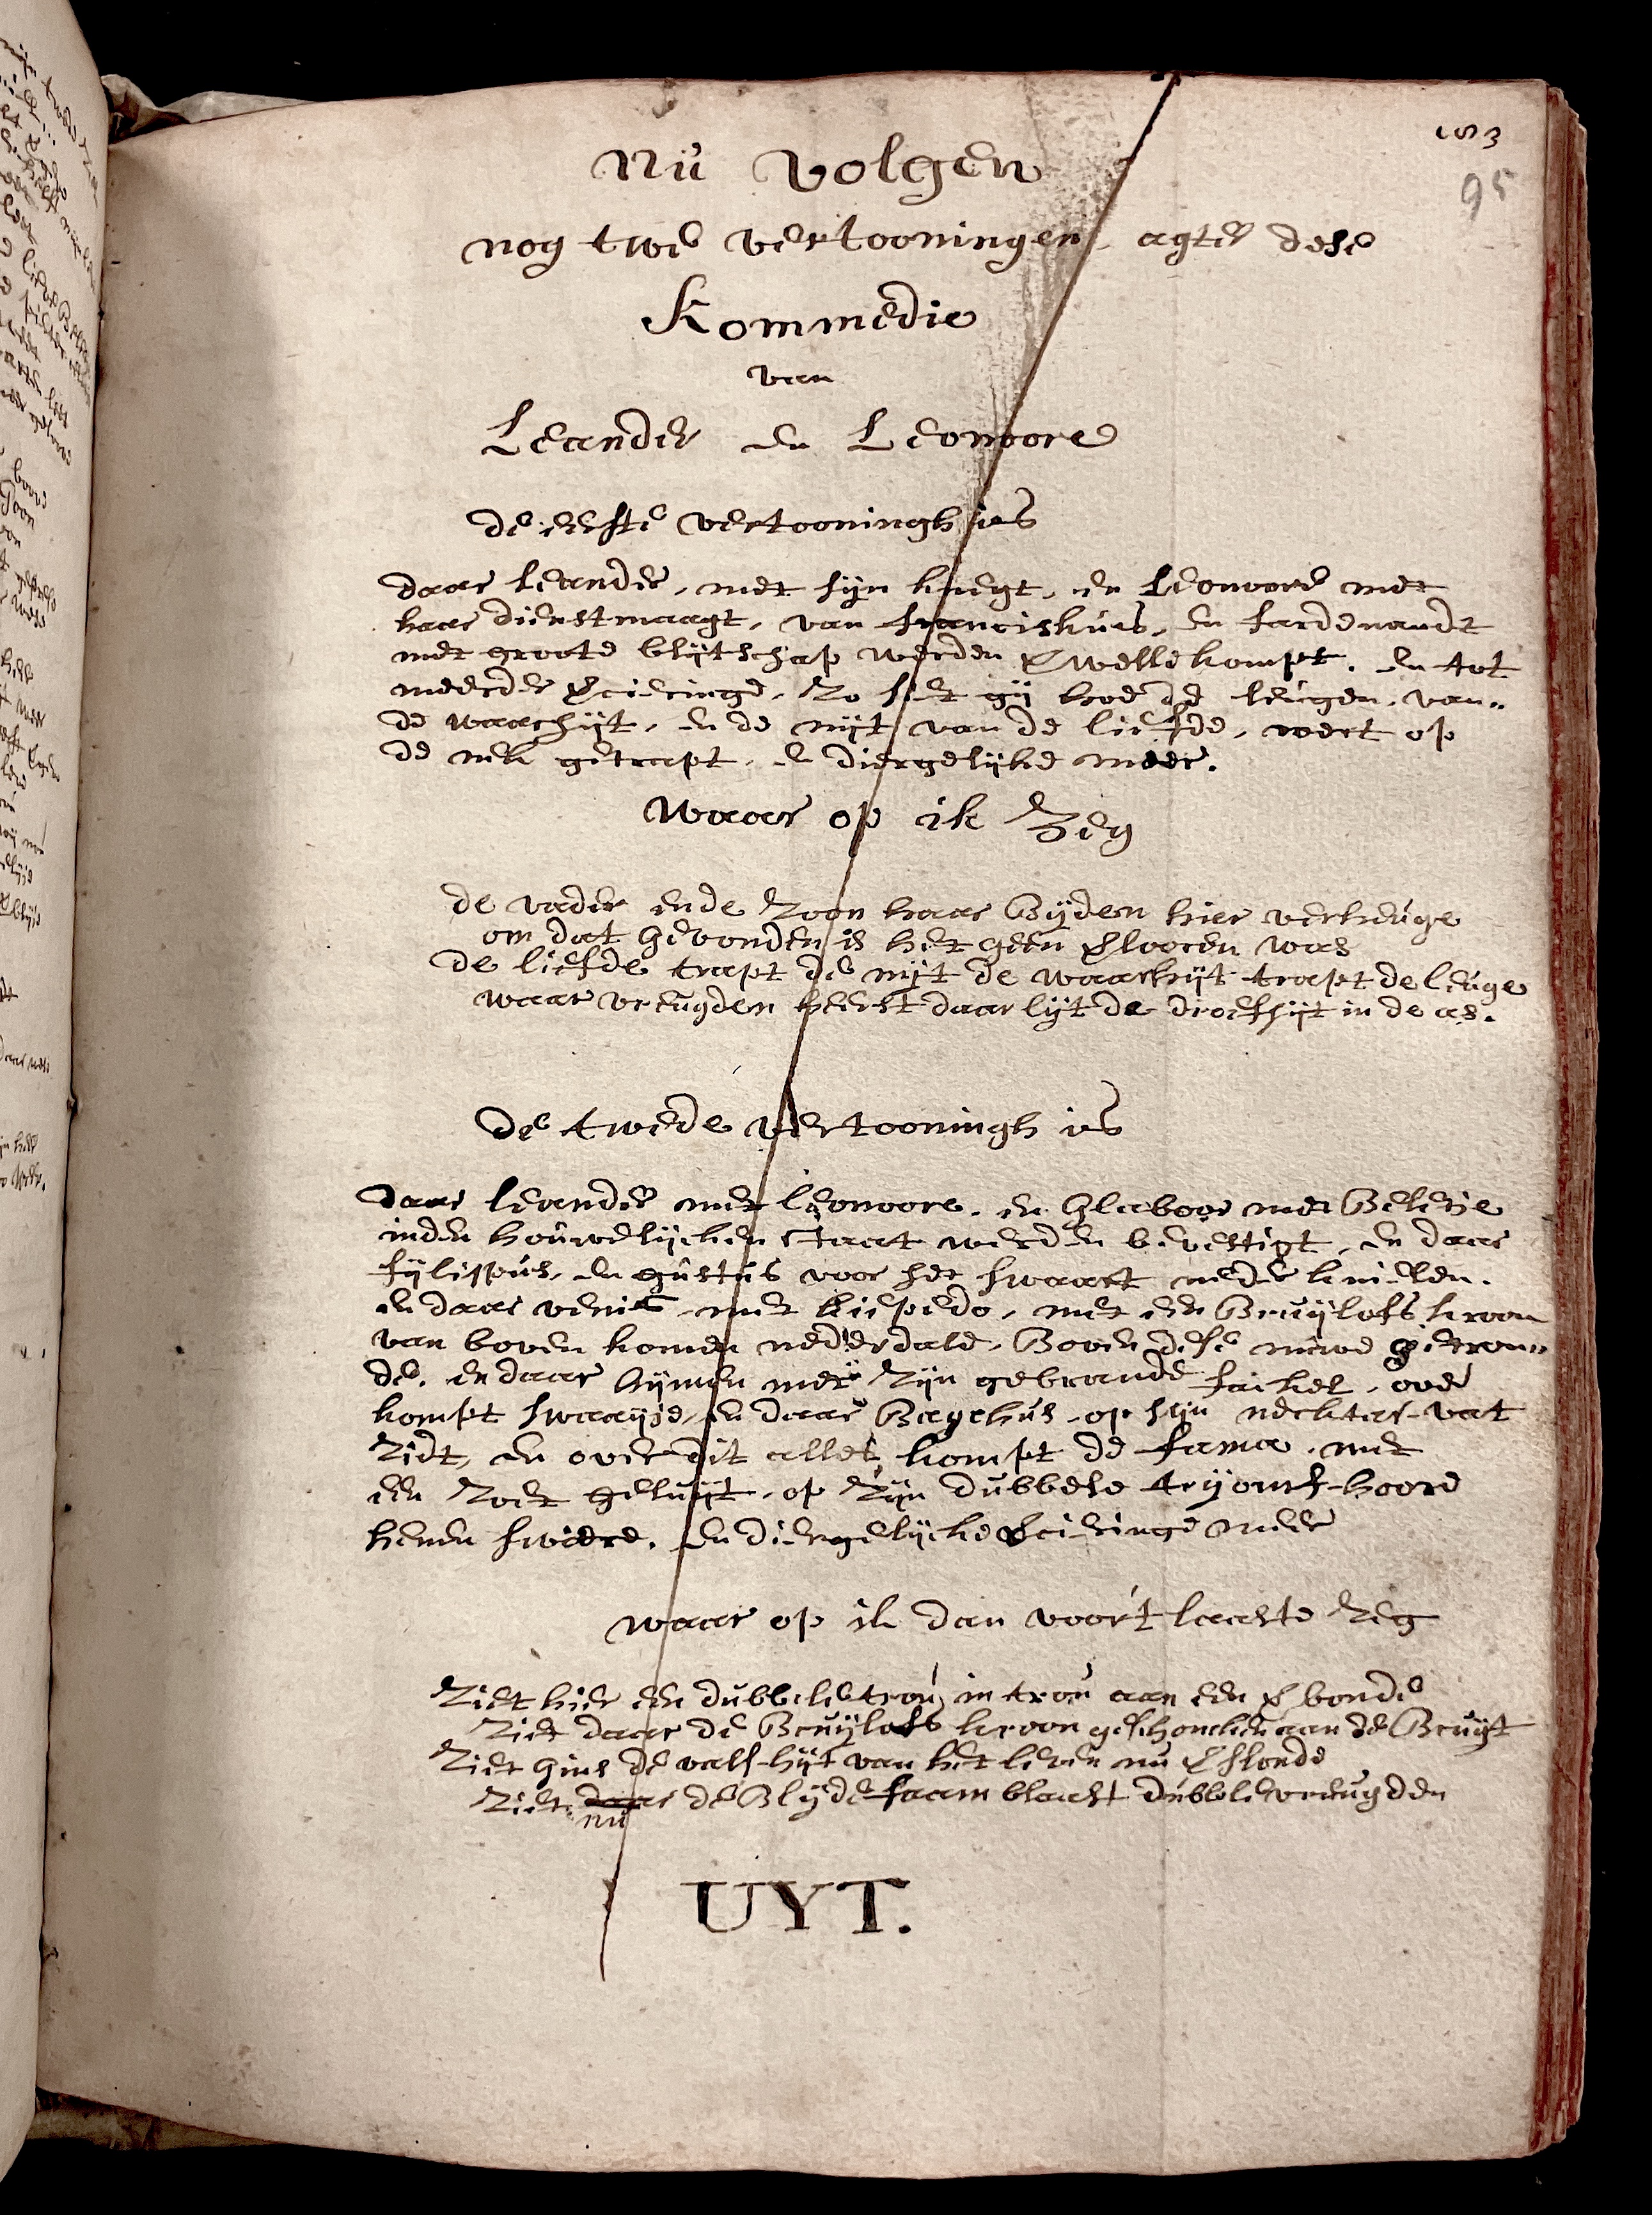 183
95
Nu volgen
nog twe vertooningen, agter dese
Kommedie
van
Leander en Leonoore
de eerste vertooningh is
daar leander, met sijn knegt, en leonoore met
haar dienstmaagt, van franciskues, en fardenandt
met groote blijtschap werden verwellekompt. en tot
meerder verciringe, zo siet gij hoe de leugen, van
de waarhijt, en de nijt van de liefde, wert op
de nek getrapt, en diergelijke meer.
waar op ik zeg
de vader ende zoon haar bijden hier verheuge
om dat gevonden is het geen verlooren was
de liefde trapt de nijt de waarhijt trapt de leuge
waar vreugden heerst daar lijt de droefhijt in de as.
de twede vertooningh is
daar leander met leonoore, en Glaboor met Belesie
inden houwelijcken staat werden bevestigt, en daar
fylippus, en gustus voor het swaart neder knielen.
en daar venis, met kiepedo, met een Bruylofs kroon
van boven komen nederdale, Boven dese niuwe getrou„
de, en daar hijmen met zijn gebrande fackel, over
kompt swaaije, en daar Bagchus, op sijn necktar-vat
zidt, en over dit alles, kompt de fama, met
een zoet geluijt, op zijn dubbele tryomf-hoore
henen swiere, en diergelijcke verciringe meer
waar op ik dan voor't laaste zeg
Ziet hier een dubbele trou, in trou aan een verbonde
Ziet daar de Bruylofs kroon geschoncken aan de Bruyt
Ziet gins de vals-hijt van het leven nu verslonde
Ziet daar de Blijde faam blaast dubbele vreugden
nu
UYT.